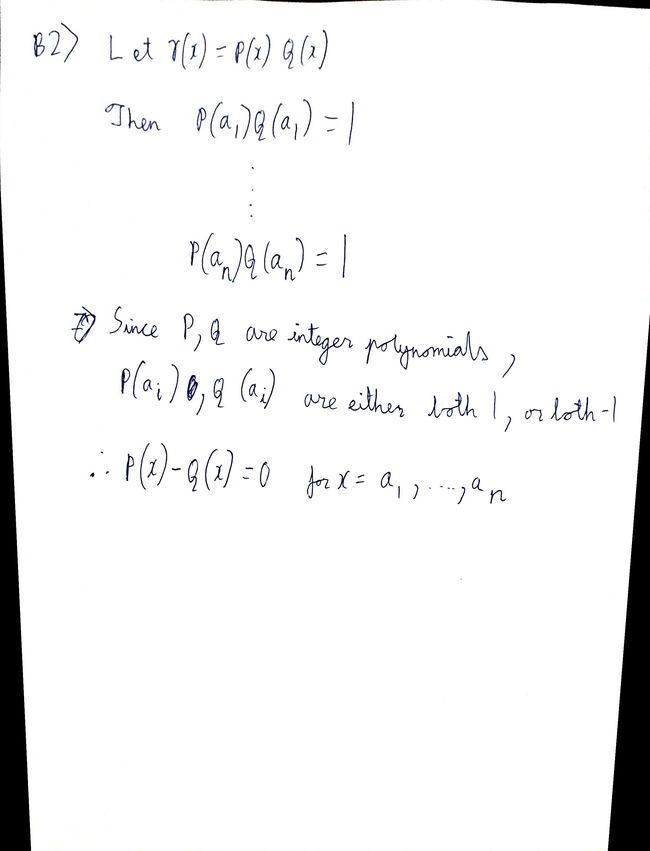 B2) Let r(x) = P(x) Q(x)
Then P(a₁)Q(a₁) = 1
⋮
P(aₙ)Q(aₙ) = 1
Since P, Q are integer polynomials,
P(aᵢ), Q(aᵢ) are either both 1, or both -1
∴ P(x) - Q(x) = 0 for x = a₁, ...., aₙ